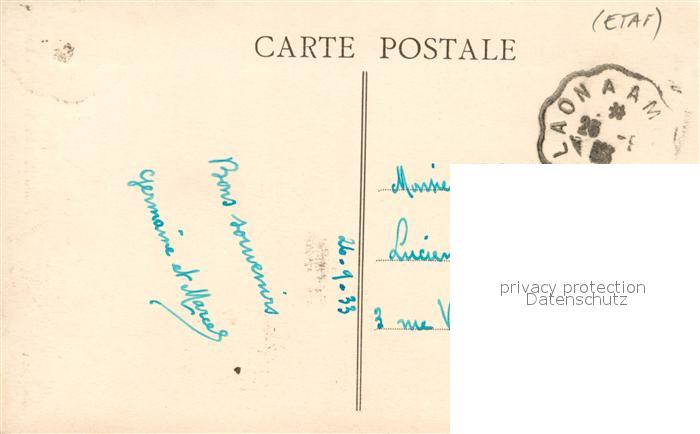 (ETAF)
CARTE POSTALE
LAON A AM
26
Bons souvenirs
Germaine et Marcel
26-9-33
Lucien
3 rue V
privacy protection
Datenschutz